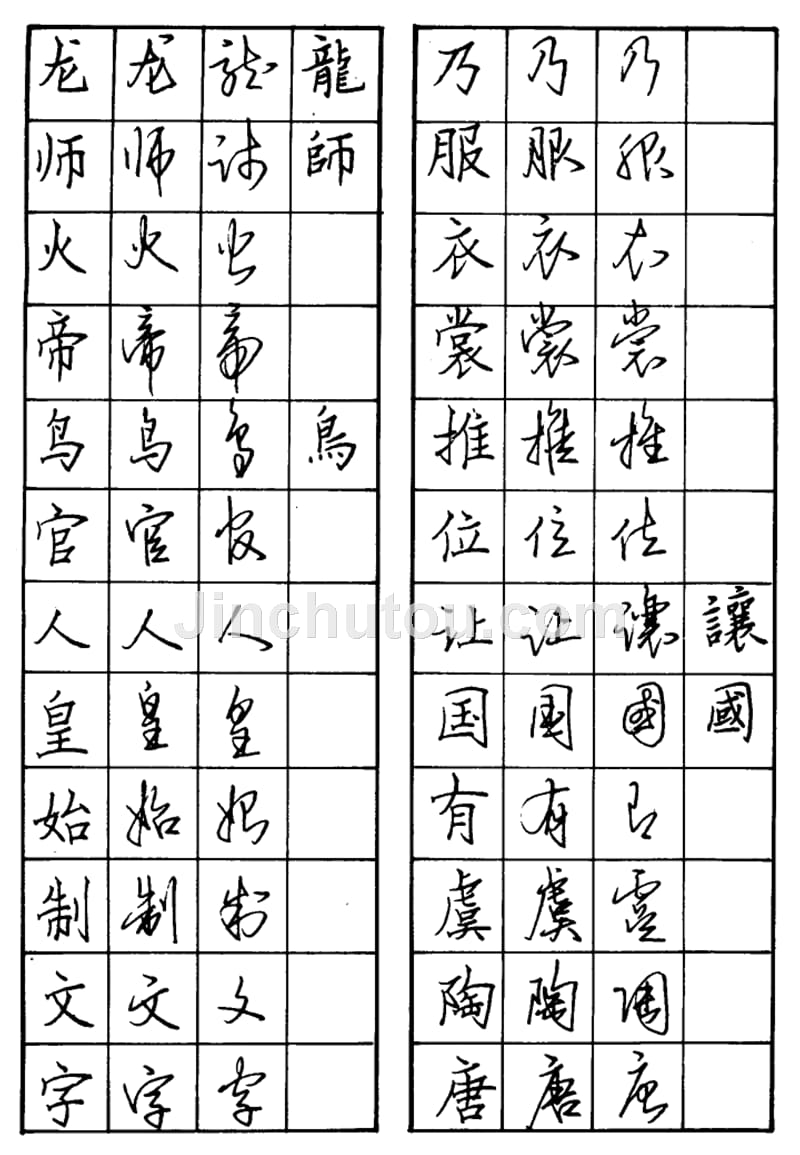 龙 龙 龙 龍
师 师 师 師
火 火 火
帝 帝 帝
鸟 鸟 鸟 鳥
官 官 官
人 人 人
皇 皇 皇
始 始 始
制 制 制
文 文 文
字 字 字
乃 乃 乃
服 服 服
衣 衣 衣
裳 裳 裳
推 推 推
位 位 位
让 让 讓 讓
国 国 國 國
有 有 有
虞 虞 虞
陶 陶 陶
唐 唐 唐
Jinchutou.com